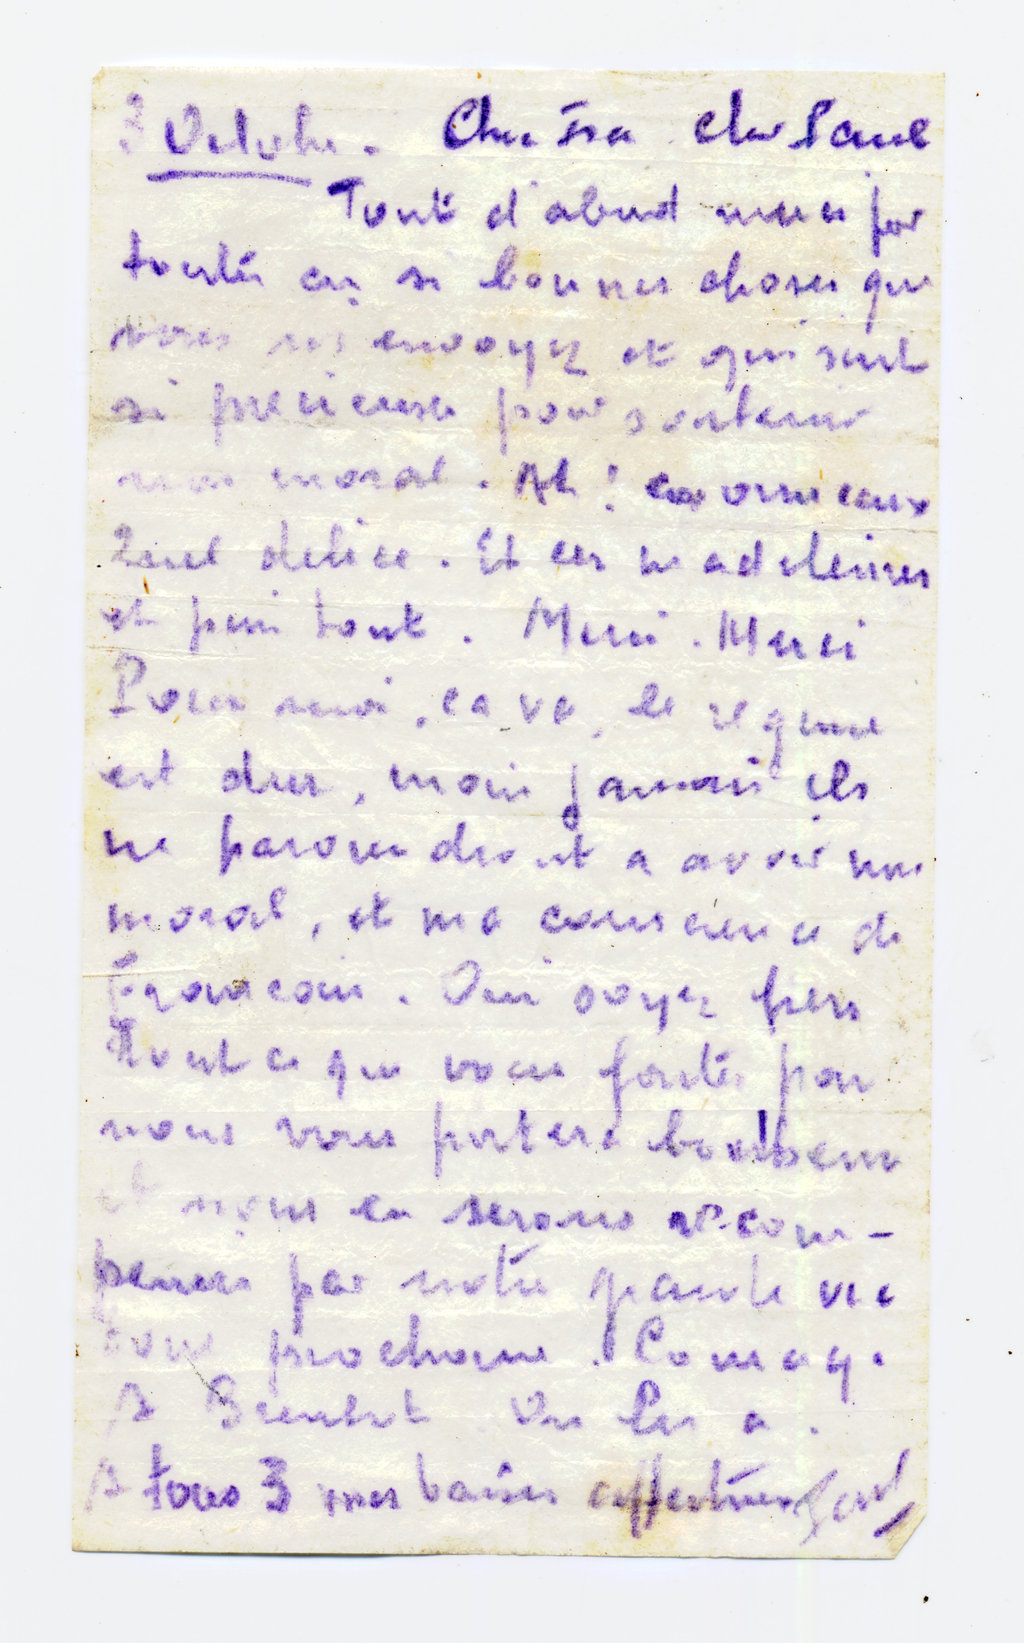 3 Octobre. Cher Isa cher Paul
Tout d'abord merci par
toutes ces si bonnes choses que
vous ns envoyez et qui sont
si precieuses pour soutenir
mon moral. Ah! ces
Quel delice. Et ces madeleines
et puis tout. Merci. Merci
Pour moi, ca va, le regime
est dur, mais jamais ils
ne parviendront a avoir mon
moral, et ma conscience de
Francais. Oui soyez fiers
Tout ce que vous faites pour
nous vous portera bonheur
et nous en serons recom-
penses par notre grande vic
toire prochaine. Courage
A Bientot On les a.
A tous 3 mes baisers affectueux